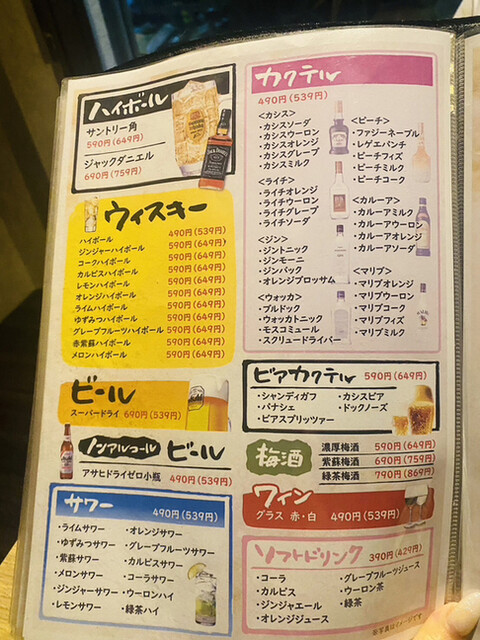 ハイボール
サントリー角
590円(649円)
ジャックダニエル
690円(759円)
ウィスキー
ハイボール 490円(539円)
ジンジャーハイボール 590円(649円)
コークハイボール 590円(649円)
カルピスハイボール 590円(649円)
レモンハイボール 590円(649円)
オレンジハイボール 590円(649円)
ライムハイボール 590円(649円)
ゆずみつハイボール 590円(649円)
グレープフルーツハイボール 590円(649円)
赤紫蘇ハイボール 590円(649円)
メロンハイボール 590円(649円)
ビール
スーパードライ 690円(539円)
ノンアルコール ビール
アサヒドライゼロ小瓶 490円(539円)
サワー
490円(539円)
・ライムサワー ・オレンジサワー
・ゆずみつサワー ・グレープフルーツサワー
・紫蘇サワー ・カルピスサワー
・メロンサワー ・コーラサワー
・ジンジャーサワー ・ウーロンハイ
・レモンサワー ・緑茶ハイ
カクテル
490円(539円)
<カシス>
・カシスソーダ
・カシスウーロン
・カシスオレンジ
・カシスグレープ
・カシスミルク
<ライチ>
・ライチオレンジ
・ライチウーロン
・ライチグレープ
・ライチソーダ
<ジン>
・ジントニック
・ジンモーニ
・ジンバック
・オレンジブロッサム
<ウォッカ>
・ブルドック
・ウォッカトニック
・モスコミュール
・スクリュードライバー
<ピーチ>
・ファジーネーブル
・レゲエパンチ
・ピーチフィズ
・ピーチミルク
・ピーチコーク
<カルーア>
・カルーアミルク
・カルーアウーロン
・カルーアオレンジ
・カルーアソーダ
<マリブ>
・マリブオレンジ
・マリブウーロン
・マリブコーク
・マリブフィズ
・マリブミルク
ビアカクテル 590円(649円)
・シャンディガフ ・カシスビア
・パナシェ ・ドックノーズ
・ビアスプリッツァー
梅酒
濃厚梅酒 590円(649円)
紫蘇梅酒 690円(759円)
緑茶梅酒 790円(869円)
ワイン
グラス 赤・白 490円(539円)
ソフトドリンク
390円(429円)
・コーラ ・グレープフルーツジュース
・カルピス ・ウーロン茶
・ジンジャエール ・緑茶
・オレンジジュース
※写真はイメージです